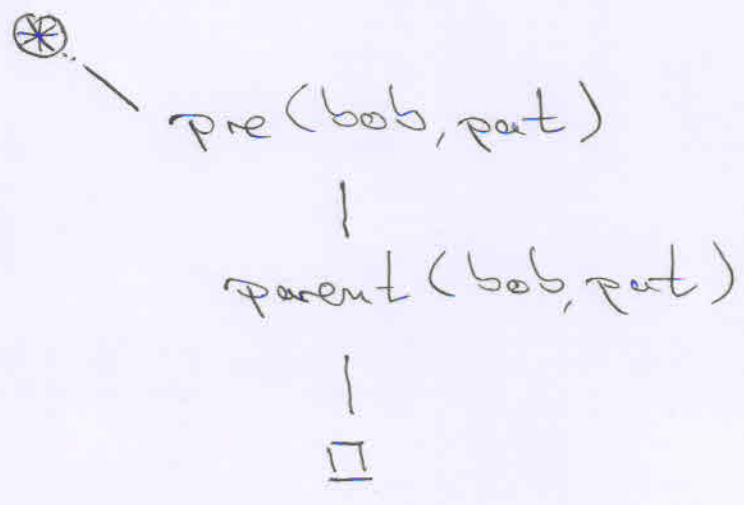 pre(bob, pat)
parent(bob, pat)